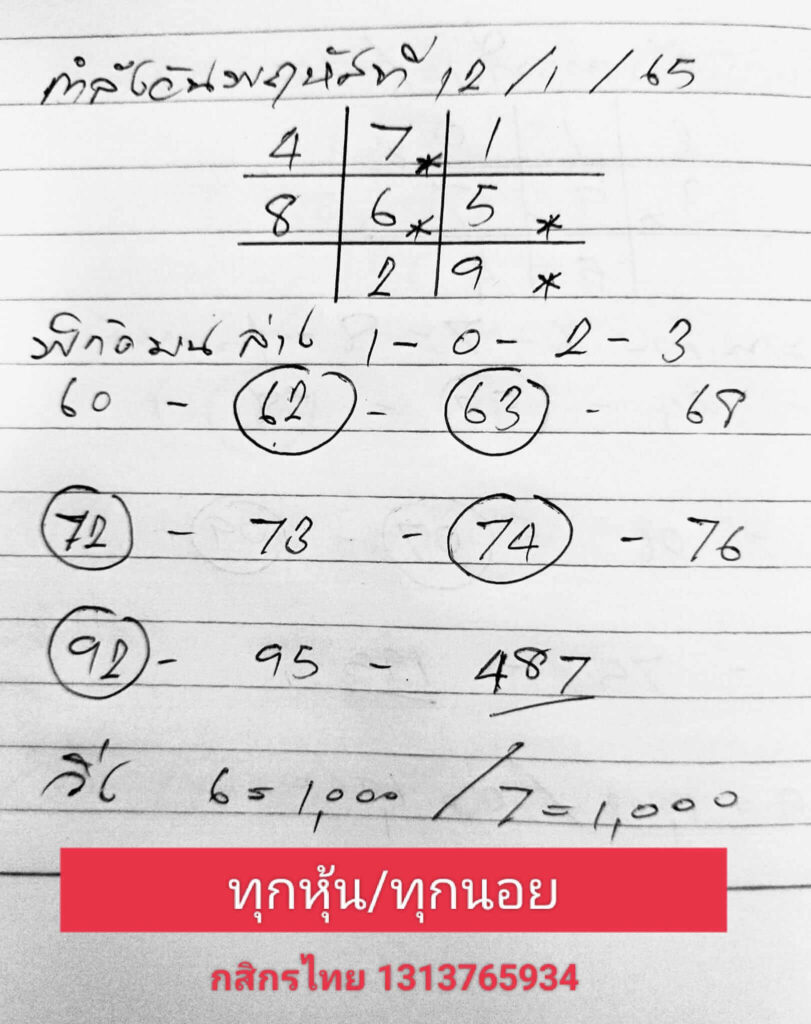 กำลังวันพฤหัสที่ 12/1/65
4 7* 1
8 6* 5 *
2 9 *
ล่าง 1 - 0 - 2 - 3
60 - 62 - 63 - 68
72 - 73 - 74 - 76
92 - 95 - 487
วิ่ง 6 = 1,000 / 7 = 1,000
ทุกหุ้น/ทุกนอย
กสิกรไทย 1313765934